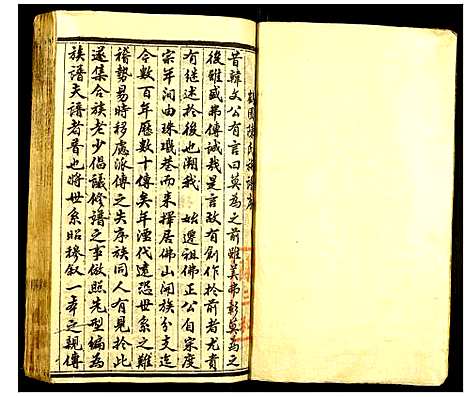 昔韓文公有言曰莫為之前雖美弗彰莫為之
後雖盛弗傳誠哉是言故有創作於前者尤貴
有继述於後也溯我 始遷祖佛正公自宋度
宗年间由珠璣巷而来擇居佛山開族分支迄
今數百年歷數十傳矣年湮代遠恐世系之難
稽勢易時移處派傳之失序族同人有見於此
遂集合族老少倡議修譜之事倣照先型編為
族譜夫譜者普也將世系昭穆叙一本之親傳